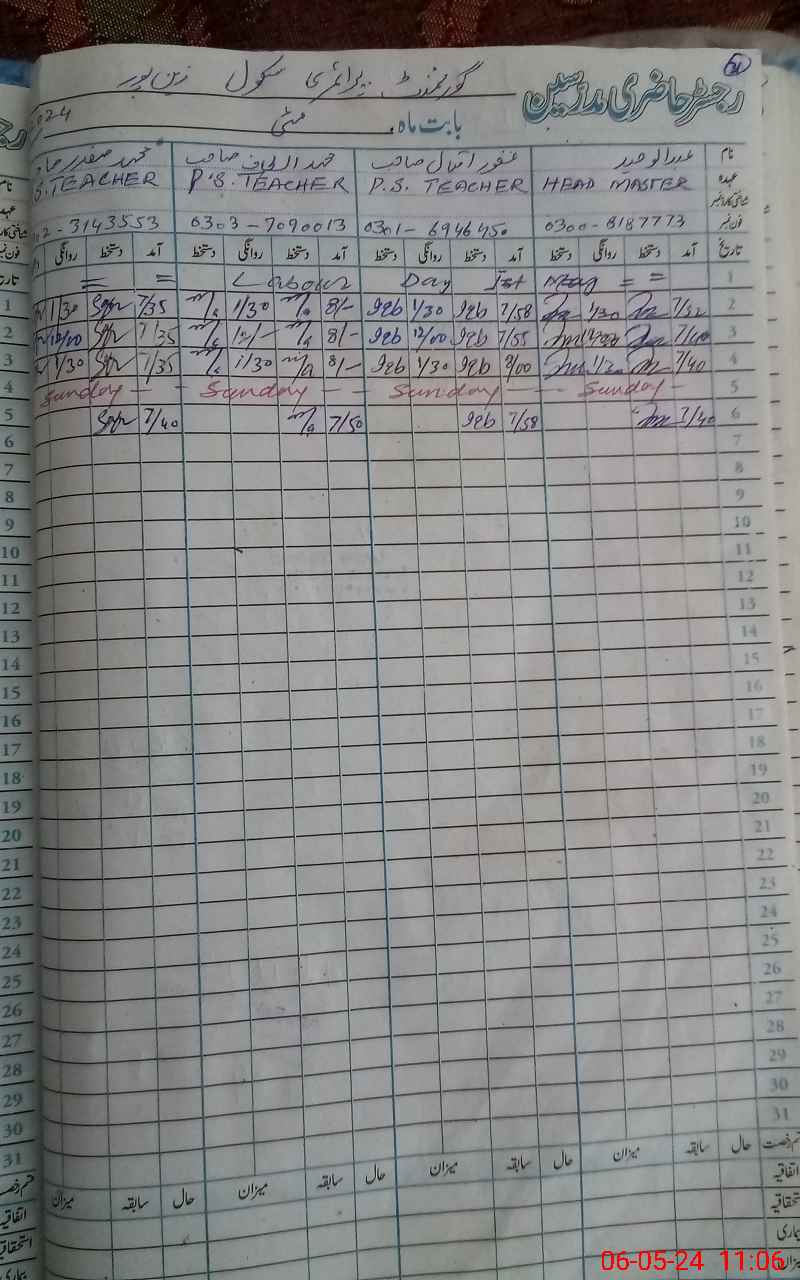 31
گورنمنٹ پرائمری سکول زین پور
رجسٹر حاضری مدرسین
بابت ماہ مئی 2024
نام عبدالوحید غفور اقبال صاحب محمد الطاف صاحب محمد صفدر صا
عہدہ HEAD MASTER P.S. TEACHER P.S. TEACHER S. TEACHER
شناختی کارڈ نمبر
فون نمبر 0300-8187773 0301-6946450 0303-7090013 02-3143553
تاریخ آمد دستخط روانگی دستخط آمد دستخط روانگی دستخط آمد دستخط روانگی دستخط آمد دستخط روانگی
1 = = Labour Day 1st May = =
2 7/32 1/30 7/58 1/30 8/- 1/30 7/35 1/30
3 7/40 12/00 7/55 12/00 8/- 12/- 7/35 12/00
4 7/40 1/30 8/00 1/30 8/- 1/30 7/35 1/30
5 Sunday - - Sunday - - Sunday - - Sunday -
6 7/40 7/58 7/50 7/40
7
8
9
10
11
12
13
14
15
16
17
18
19
20
21
22
23
24
25
26
27
28
29
30
31
قسم رخصت حال سابقہ میزان حال سابقہ میزان حال سابقہ میزان حال سابقہ میزان
اتفاقیہ
استحقاقیہ
بیماری
میزان
06-05-24 11:06